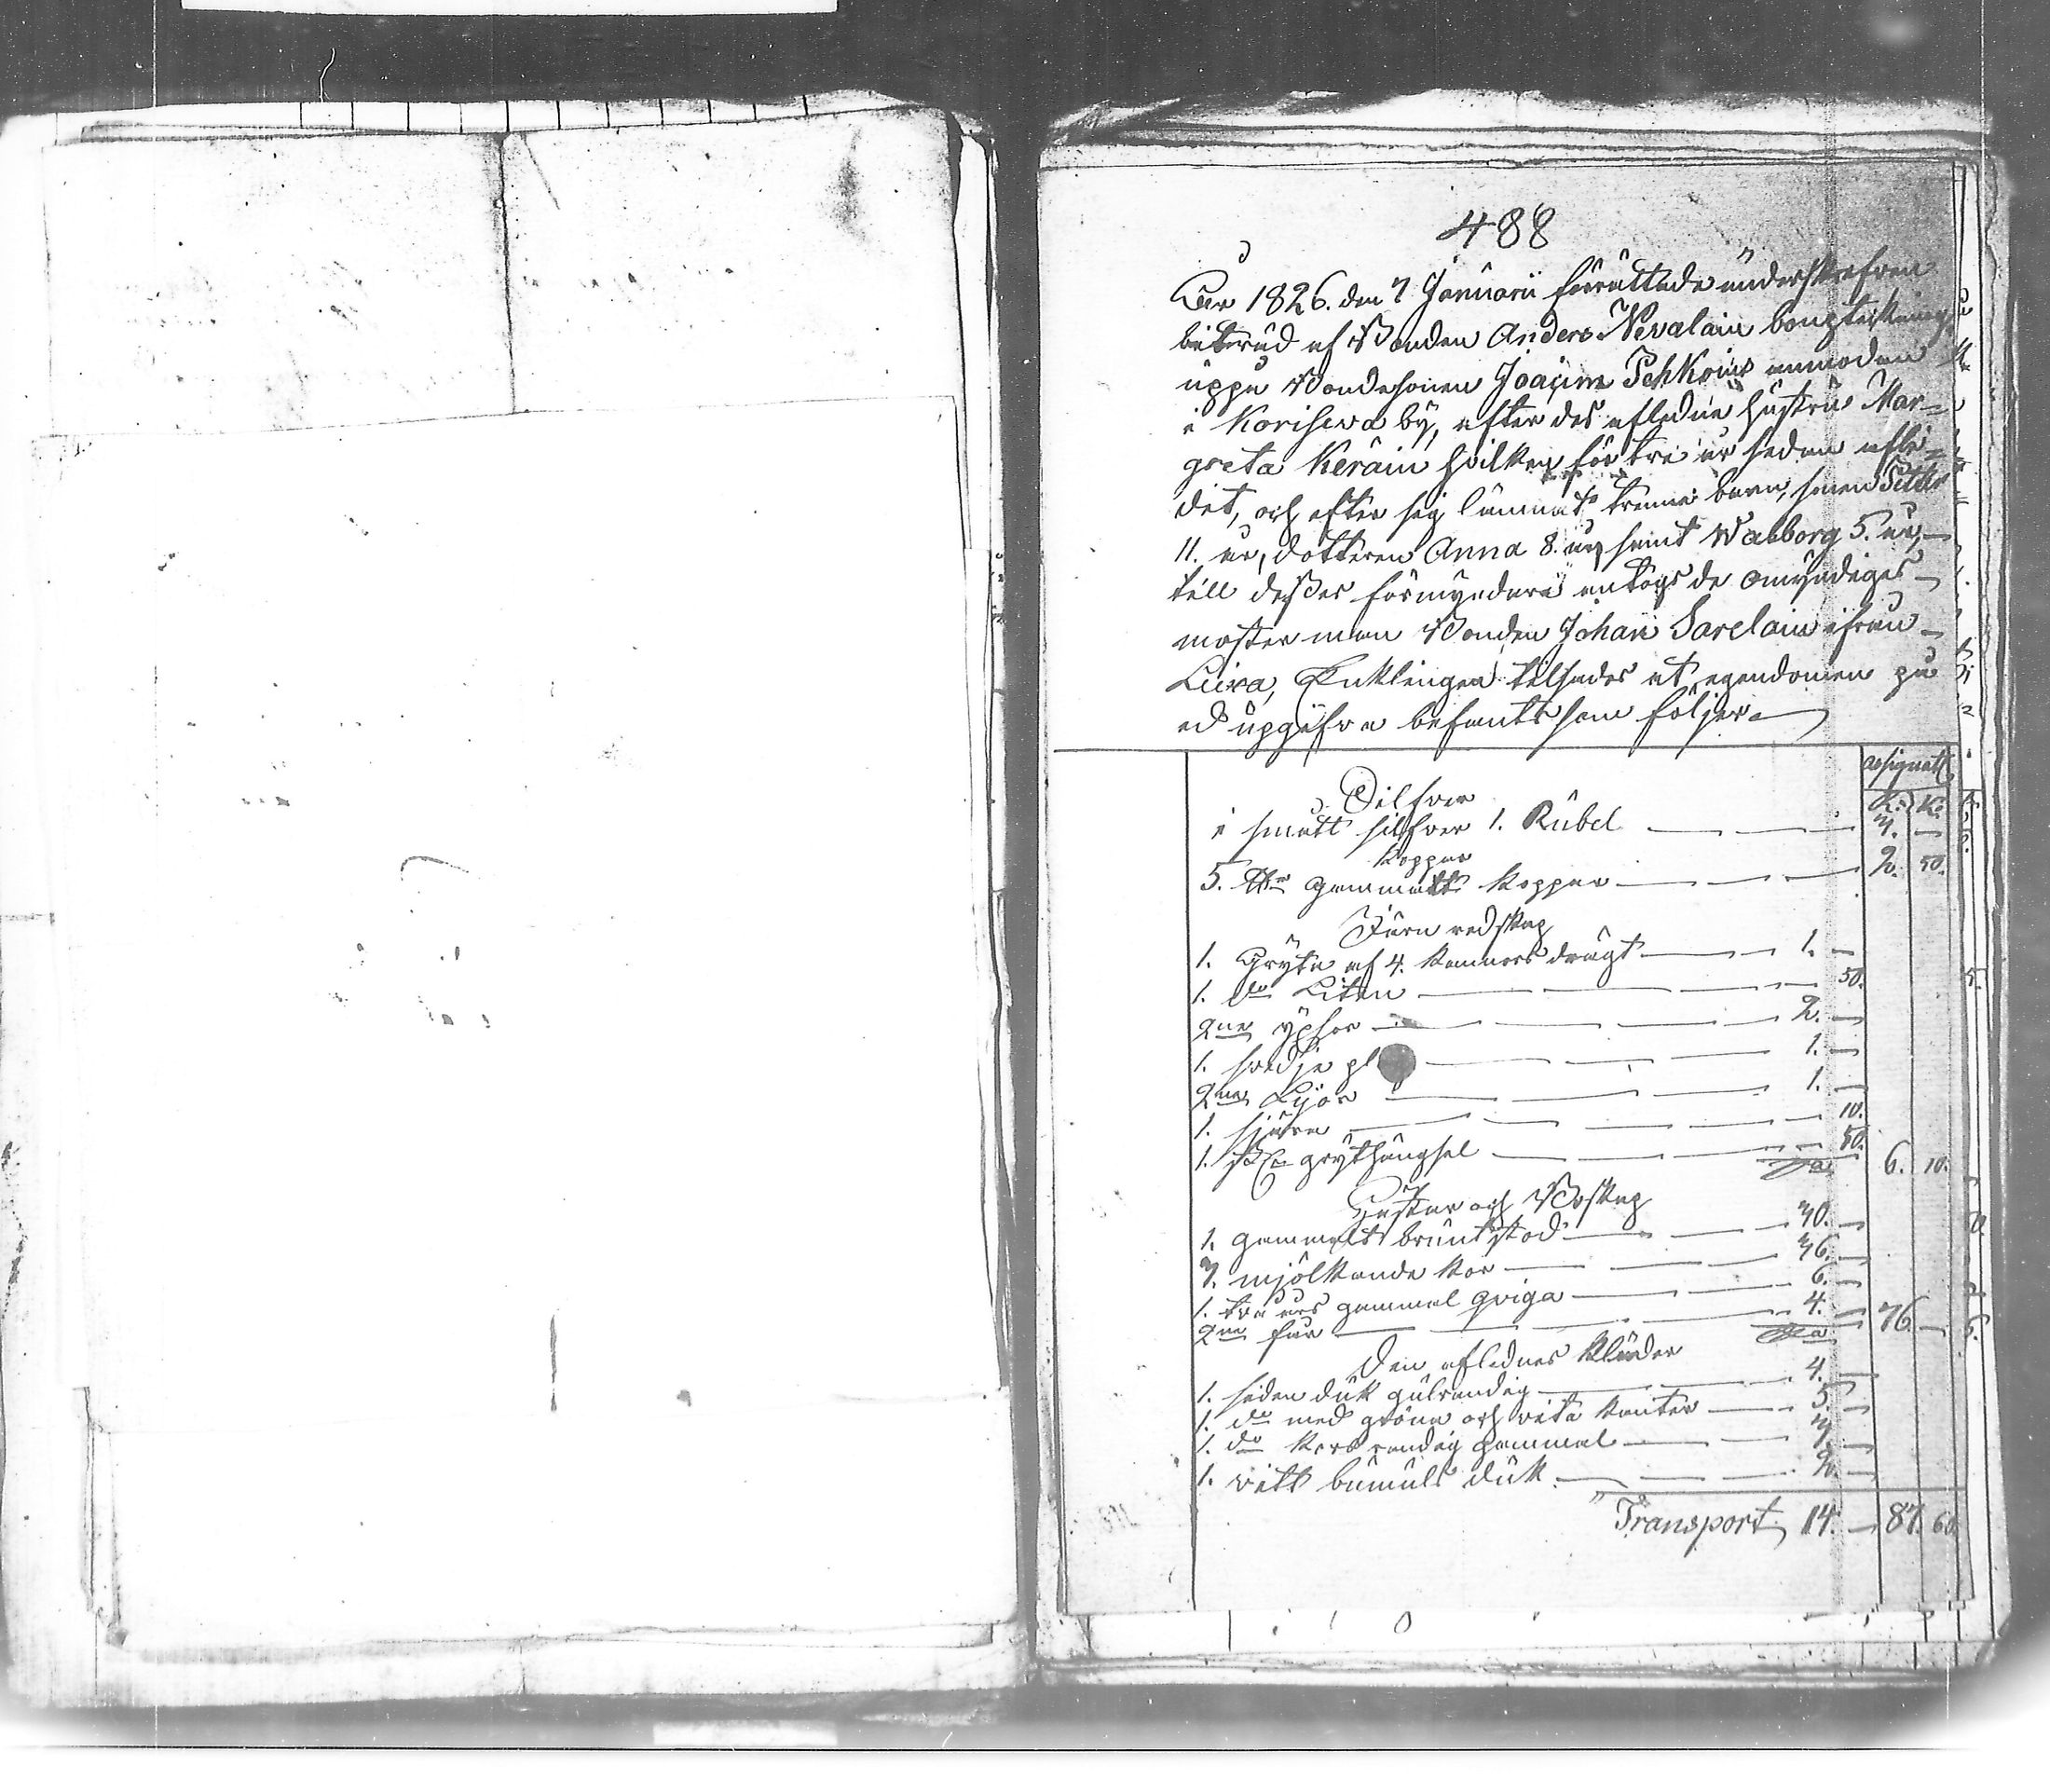 488
Åhr 1826. den 7 Januarii förrättade underskrefven
biträd af Bonden Anders Nevalain bouptekning
uppå Bondesonen Joacim Pehkoins anmodan
i Koriseva by, efter des aflidna hustru Mar=
greta Keräin hvilken för tre år sedan afli=
dit, och efter sig lämnat trenne barn, sonen Petter
11. år, dotteren Anna 8. år samt Walborg 5. år,
till desses förmyndare antogs de omyndiges
moster man Bonden Johan Sarelain ifrån
Luva, Enklingen tilsades at egendomen på
ed upgifva befants som följer
assignat
R. K.
Silfver
i smått silfver 1. Rubel 3. —
Koppar
5. gammalt Koppar 2. 50.
Järn redskap
1. Gryta af 4. Kannors drägt 1. —
1. do Liten 50.
2ne yxor 2. —
1. svedje pl 1. —
2ne Lijor 1. —
1. skjära 10.
1. grythängsel 50. 6. 10.
Hästar och Boskap
1. gammalt brunt stod 30. —
3. mjölkande Kor 36. —
1. två års gammal qviga 6. —
2ne får 4. — 76. —
Den aflidnes Kläder
1. siden duk gulrandig 4. —
1. do med gröna och vita kanter 5. —
1. do kors randig gammal 3. —
1. vitt bumuls duk 2. —
Transport 14. — 87. 60.